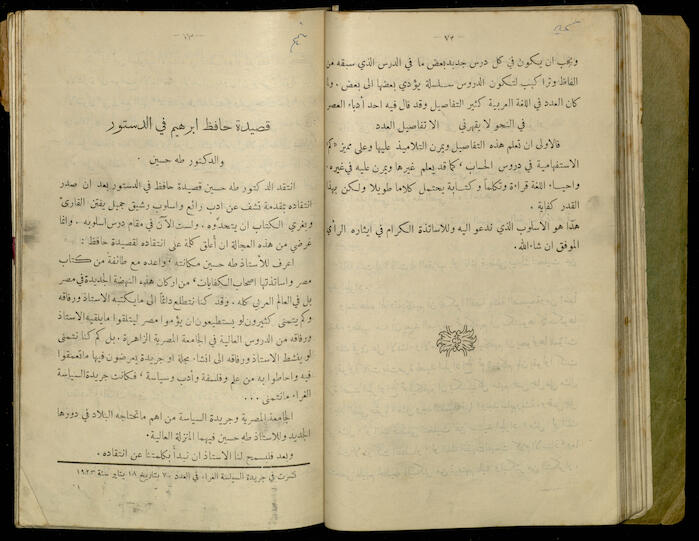 — ٧٢ —
ويجب ان يكون في كل درس جديد بعض ما في الدرس الذي سبقه من
الفاظ وتراكيب لتكون الدروس سلسلة يؤدي بعضها الى بعض . ولما
كان العدد في اللغة العربية كثير التفاصيل وقد قال فيه احد أدباء العصر
في النحو لا يقهرني الا تفاصيل العدد
فالاولى ان تعلم هذه التفاصيل ويمرن التلاميذ عليها وعلى تمييز «كم»
الاستفهامية في دروس الحساب ، كما قد يعلم غيرها ويمرن عليه في غيره.
واحياء اللغة قراءة وتكلماً وكتابة يحتمل كلاما طويلا ولكن بهذا
القدر كفاية .
هذا هو الاسلوب الذي ندعو اليه وللاساتذة الكرام في ايثاره الرأي
الموفق ان شاء الله .
— ٧٣ —
قصيدة حافظ ابرهيم في الدستور
والدكتور طه حسين .
انتقد الدكتور طه حسين قصيدة حافظ في الدستور بعد ان صدر
انتقاده بمقدمة تشف عن ادب رائع واسلوب رشيق جميل يفتن القارئ
ويغري الكتاب ان يتحدوه . ولست الآن في مقام درس اسلوبه . وانما
غرضي من هذه العجالة ان أعلق كلمة على انتقاده لقصيدة حافظ :
اعرف للأستاذ طه حسين مكانته ، واعده مع طائفة من كتاب
مصر واساتذتها اصحاب الكفايات ، من اركان هذه النهضة الجديدة في مصر
بل في العالم العربي كله . وقد كنا نتطلع دائما الى ما يكتبه الاستاذ ورفاقه
وكم يتمنى كثيرون لو يستطيعون ان يؤموا مصر ليتلقوا ما يلقيه الاستاذ
ورفاقه من الدروس العالية في الجامعة المصرية الزاهرة . بل كم كنا نتمنى
لو ينشط الاستاذ ورفاقه الى انشاء مجلة او جريدة يعرضون فيها ما تعمقوا
فيه واحاطوا به من علم وفلسفة وأدب وسياسة ، فكانت جريدة السياسة
الغراء ما نتمنى ...
الجامعة المصرية وجريدة السياسة من اهم ما تحتاجه البلاد في دورها
الجديد وللاستاذ طه حسين فيهما المنزلة العالية .
وبعد فليسمح لنا الاستاذ ان نبدأ بكلمتنا عن انتقاده .
نشرت في جريدة السياسة الغراء في العدد ٧٠ بتاريخ ١٨ يناير سنة ١٩٢٣